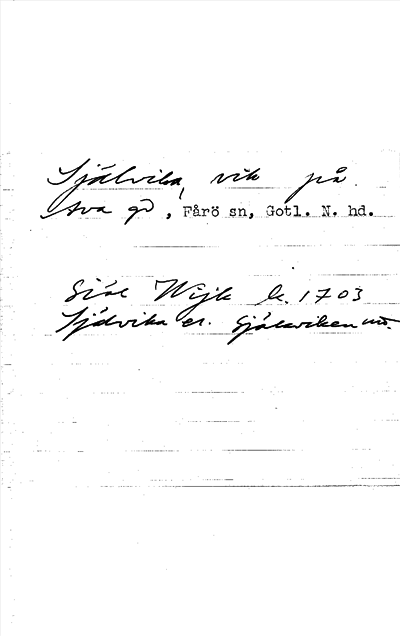 Självika, vik på
Ava gd, Fårö sn, Gotl. N. hd.
Siäl Wijk k. 1703
Självika el. Själaviken